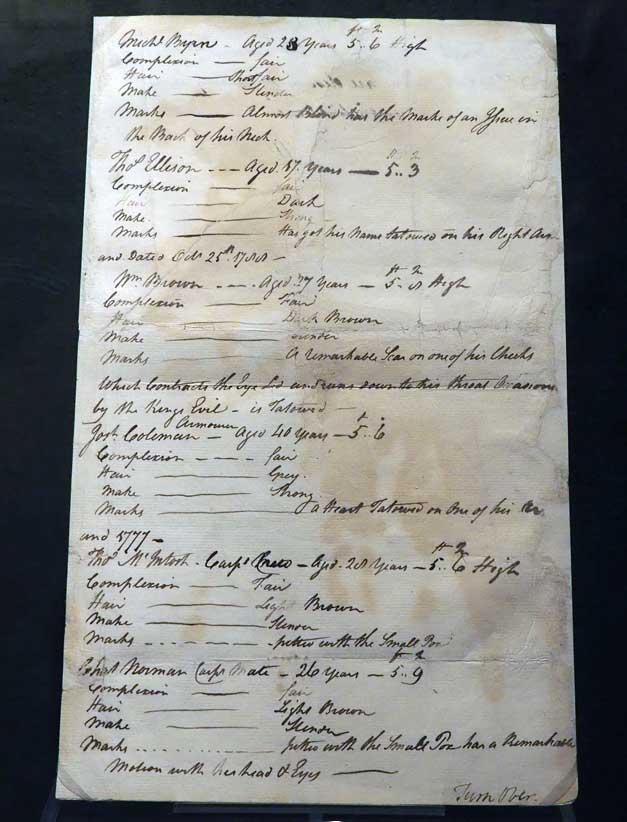 Ft In
Michl Byrn - Aged 28 Years 5..6 High
Complexion — fair
Hair — Short fair
Make — Slender
Marks — Almost Blind has the Marke of an Issue in
the Back of his Neck
Ft In
Thos Ellison --- Aged 17 Years — 5..3
Complexion — fair
Hair — Dark
Make — Strong
Marks — Has got his Name tatowed on his Right Arm
and Dated Octr 25th 1788 -
Ft In
Wm Brown --- Aged 27 Years - 5..8 High
Complexion — Fair
Hair — Dark Brown
Make — Slender
Marks — a remarkable Scar on one of his Cheeks
Which Contracts the Eye Lid and runs down to his throat Occasioned
by the Kings Evil - is Tatowed -
Armourer
Josh Coleman - Aged 40 Years - 5..6
Complexion ---- fair
Hair — Grey
Make — Strong
Marks — a Heart Tatowed on One of his
and 5777 -
Ft In
Thos McIntosh - Carps Crew - Aged 28 Years - 5..6 High
Complexion — Fair
Hair — Light Brown
Make — Slender
Marks — pitted with the Small Pox
Ft In
Chas Norman Carps Mate - 26 Years - 5..9
Complexion — fair
Hair — Light Brown
Make — Slender
Marks — pitted with the Small Pox has a Remarkable
Motion with his head & Eyes —
Turn Over.